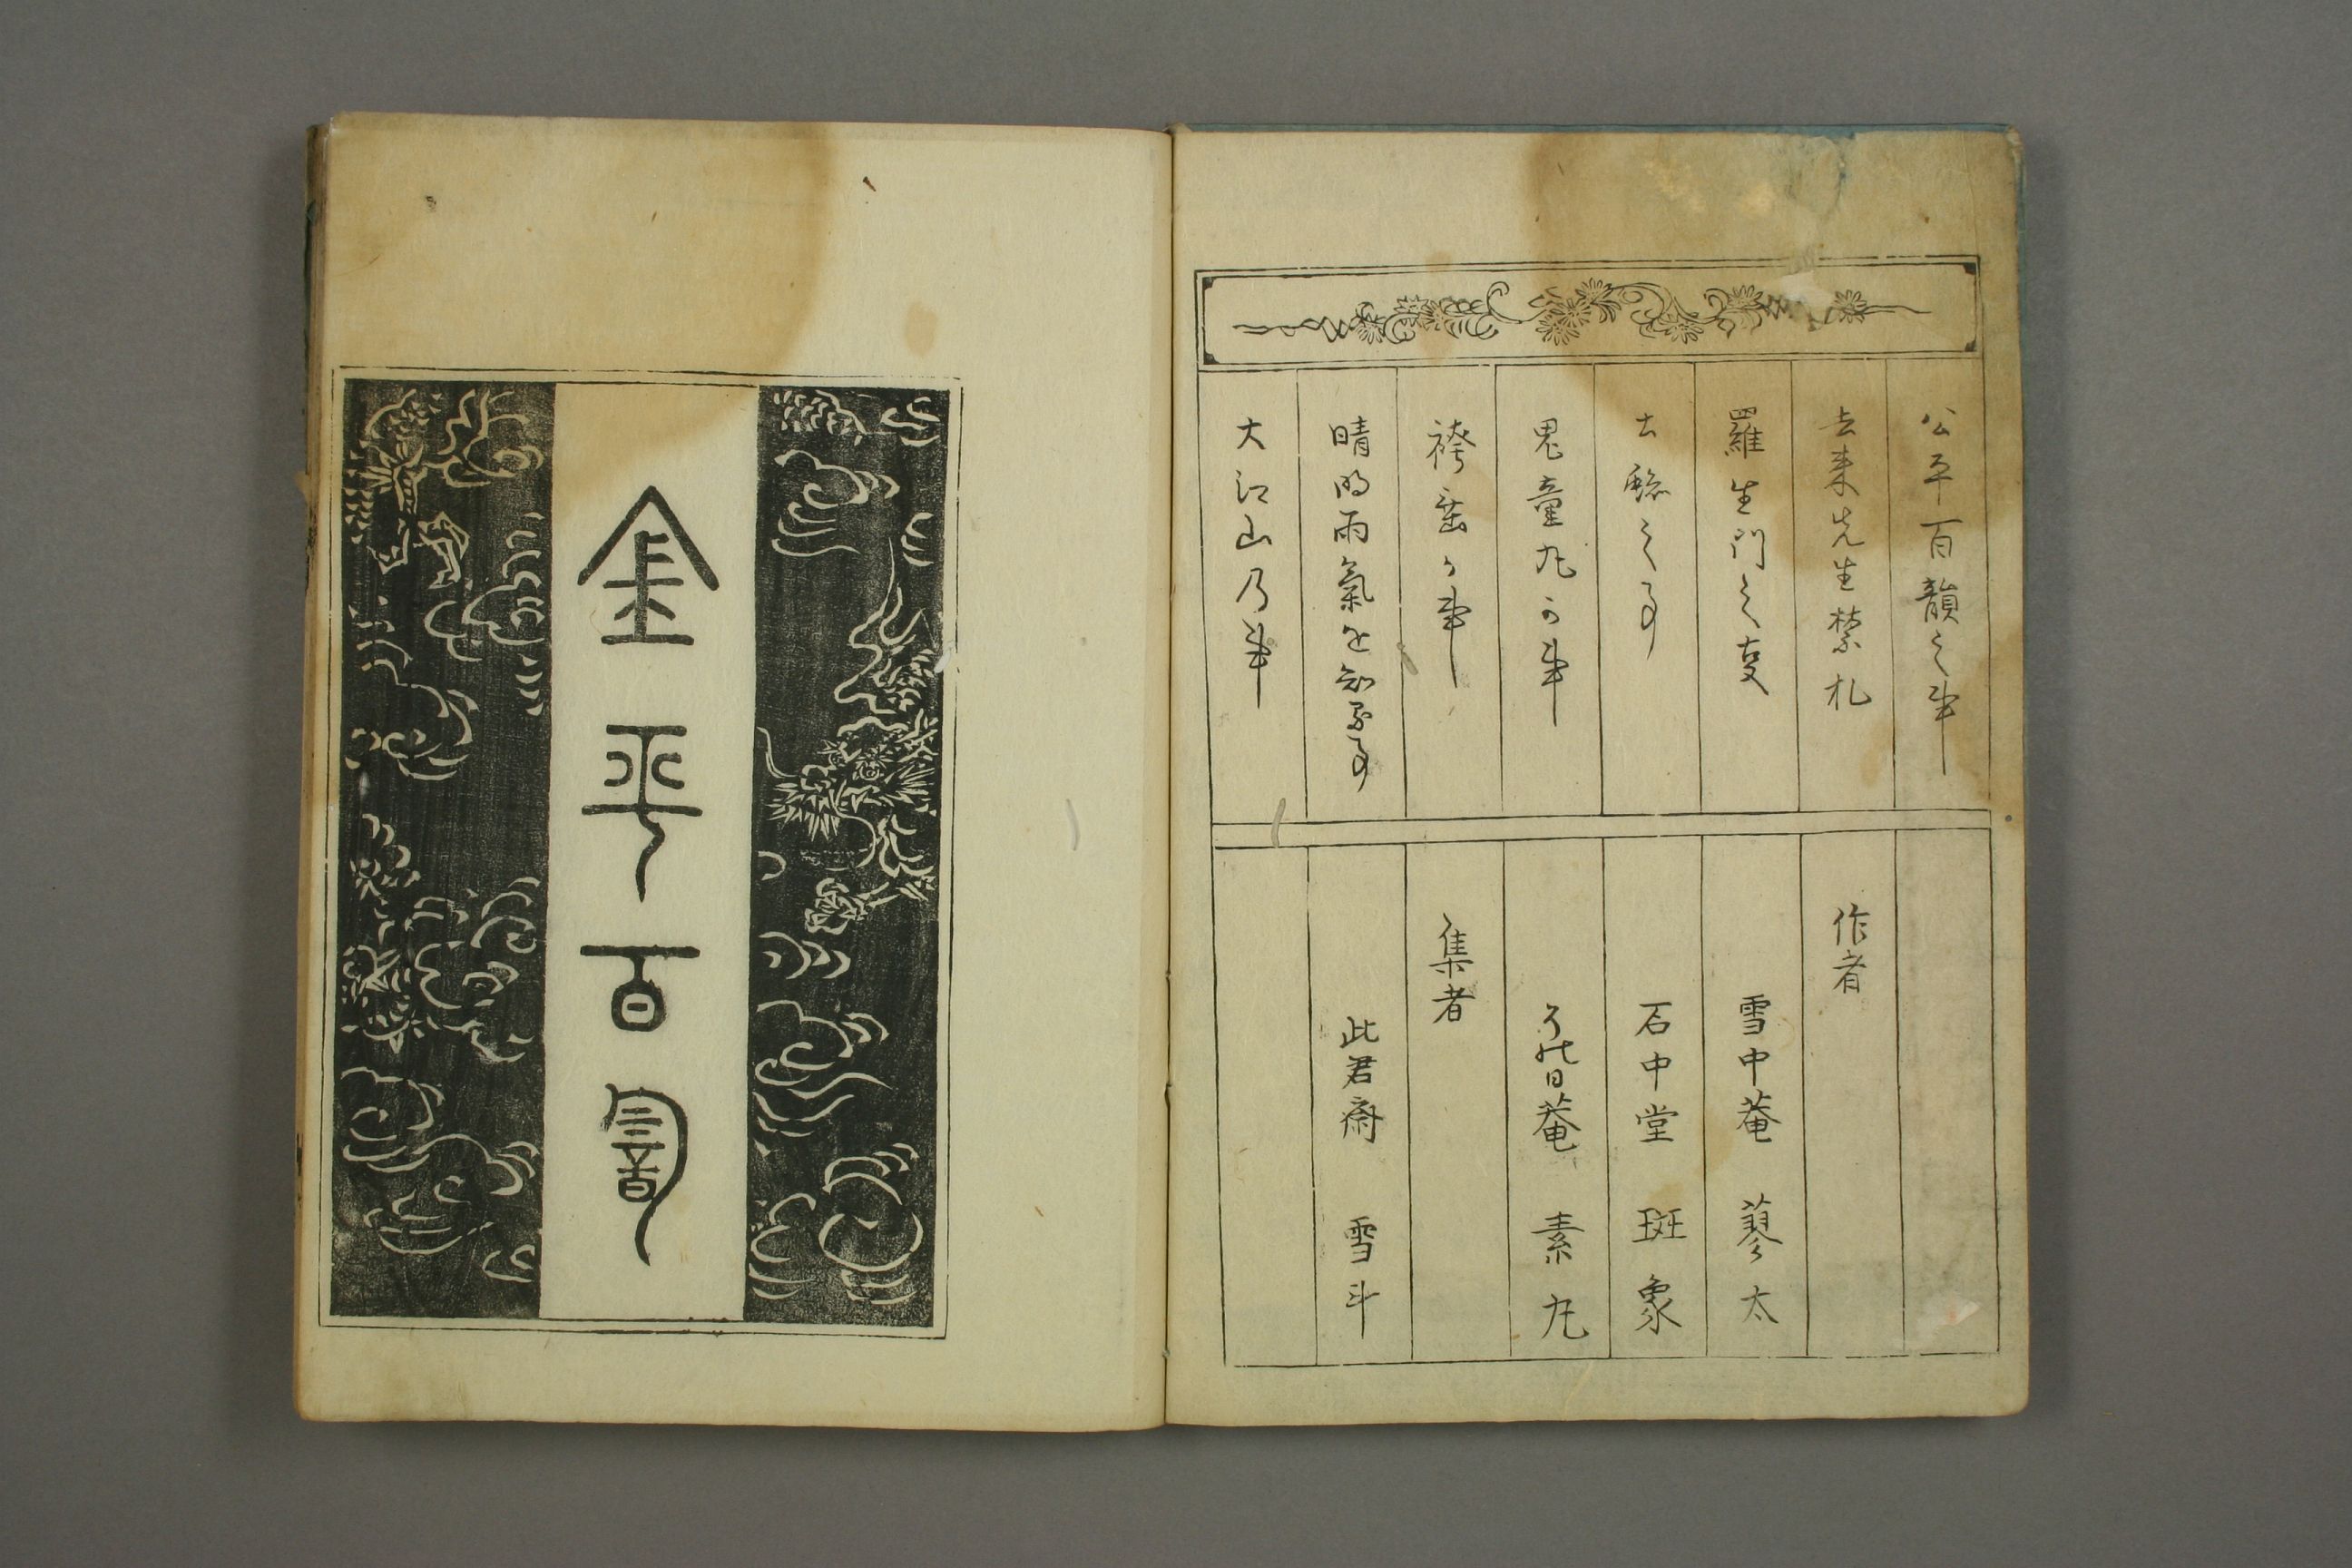 公平百韻之事
去来先生禁札
羅生門之叓
土之事
鬼童丸か事
袴垂か事
晴明雨氣を知る事
大江山乃事
作者
雪中菴 蓼太
石中堂 斑象
その日菴 素丸
集者
此君齋 雪斗
金平百韻